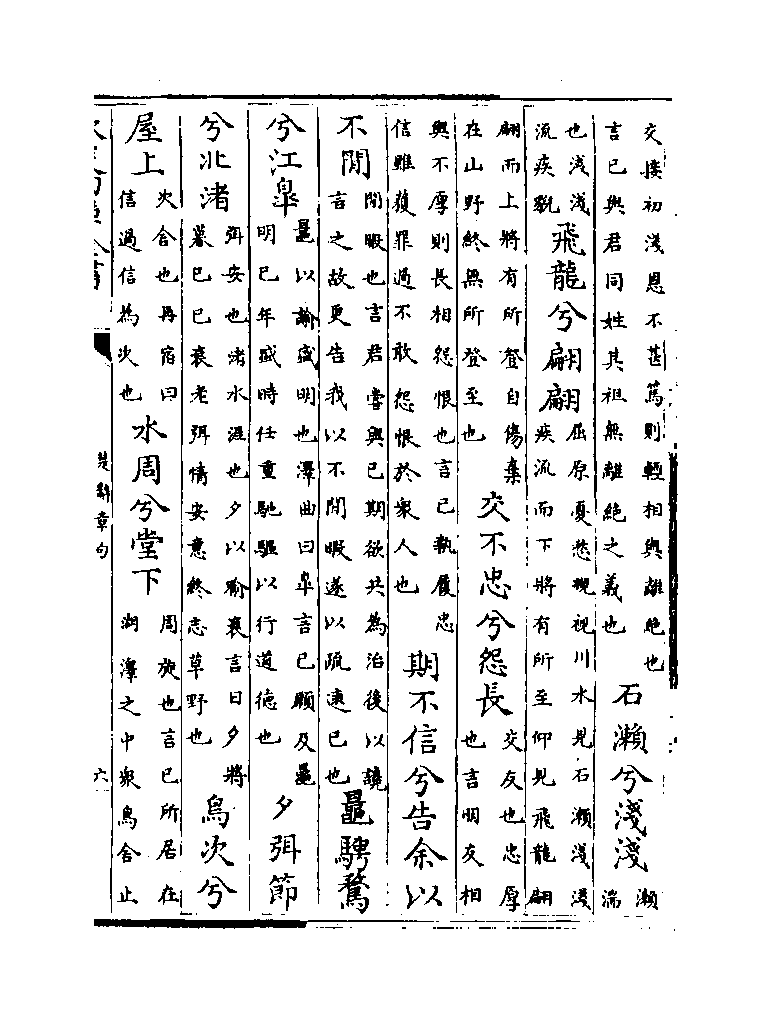 交接初淺恩不甚篤則輕相與離絶也言已與君同姓其祖無離絶之義也石瀨兮淺淺瀨湍
也淺淺流疾貌飛龍兮翩翩屈原憂愁觀視川水見石瀨淺淺疾流而下將有所至仰見飛龍翩
翩而上將有所登自傷棄在山野終無所登至也交不忠兮怨長交友也忠厚也言朋友相
與不厚則長相怨恨也言已執履忠信雖獲罪過不敢怨恨於衆人也期不信兮告余以
不閒閒暇也言君嘗與已期欲共為泊後以讒言之故更告我以不閒暇遂以疏逺已也鼂騁騖
兮江臯鼂以諭盛明也澤曲曰臯言已願及鼂明已年盛時任重馳驅以行道德也夕弭節
兮北渚弭安也渚水涯也夕以喻衰言日夕將暮已已衰老弭情安意終志草野也鳥次兮
屋上次舍也再宿曰信過信為次也水周兮堂下周旋也言已所居在湖澤之中衆鳥舍止
楚辭章句
六